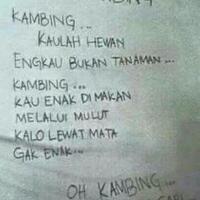 KAMBING...
KAULAH HEWAN
ENGKAU BUKAN TANAMAN...
KAMBING...
KAU ENAK DI MAKAN
MELALUI MULUT
KALO LEWAT MATA
GAK ENAK...
OH KAMBING...